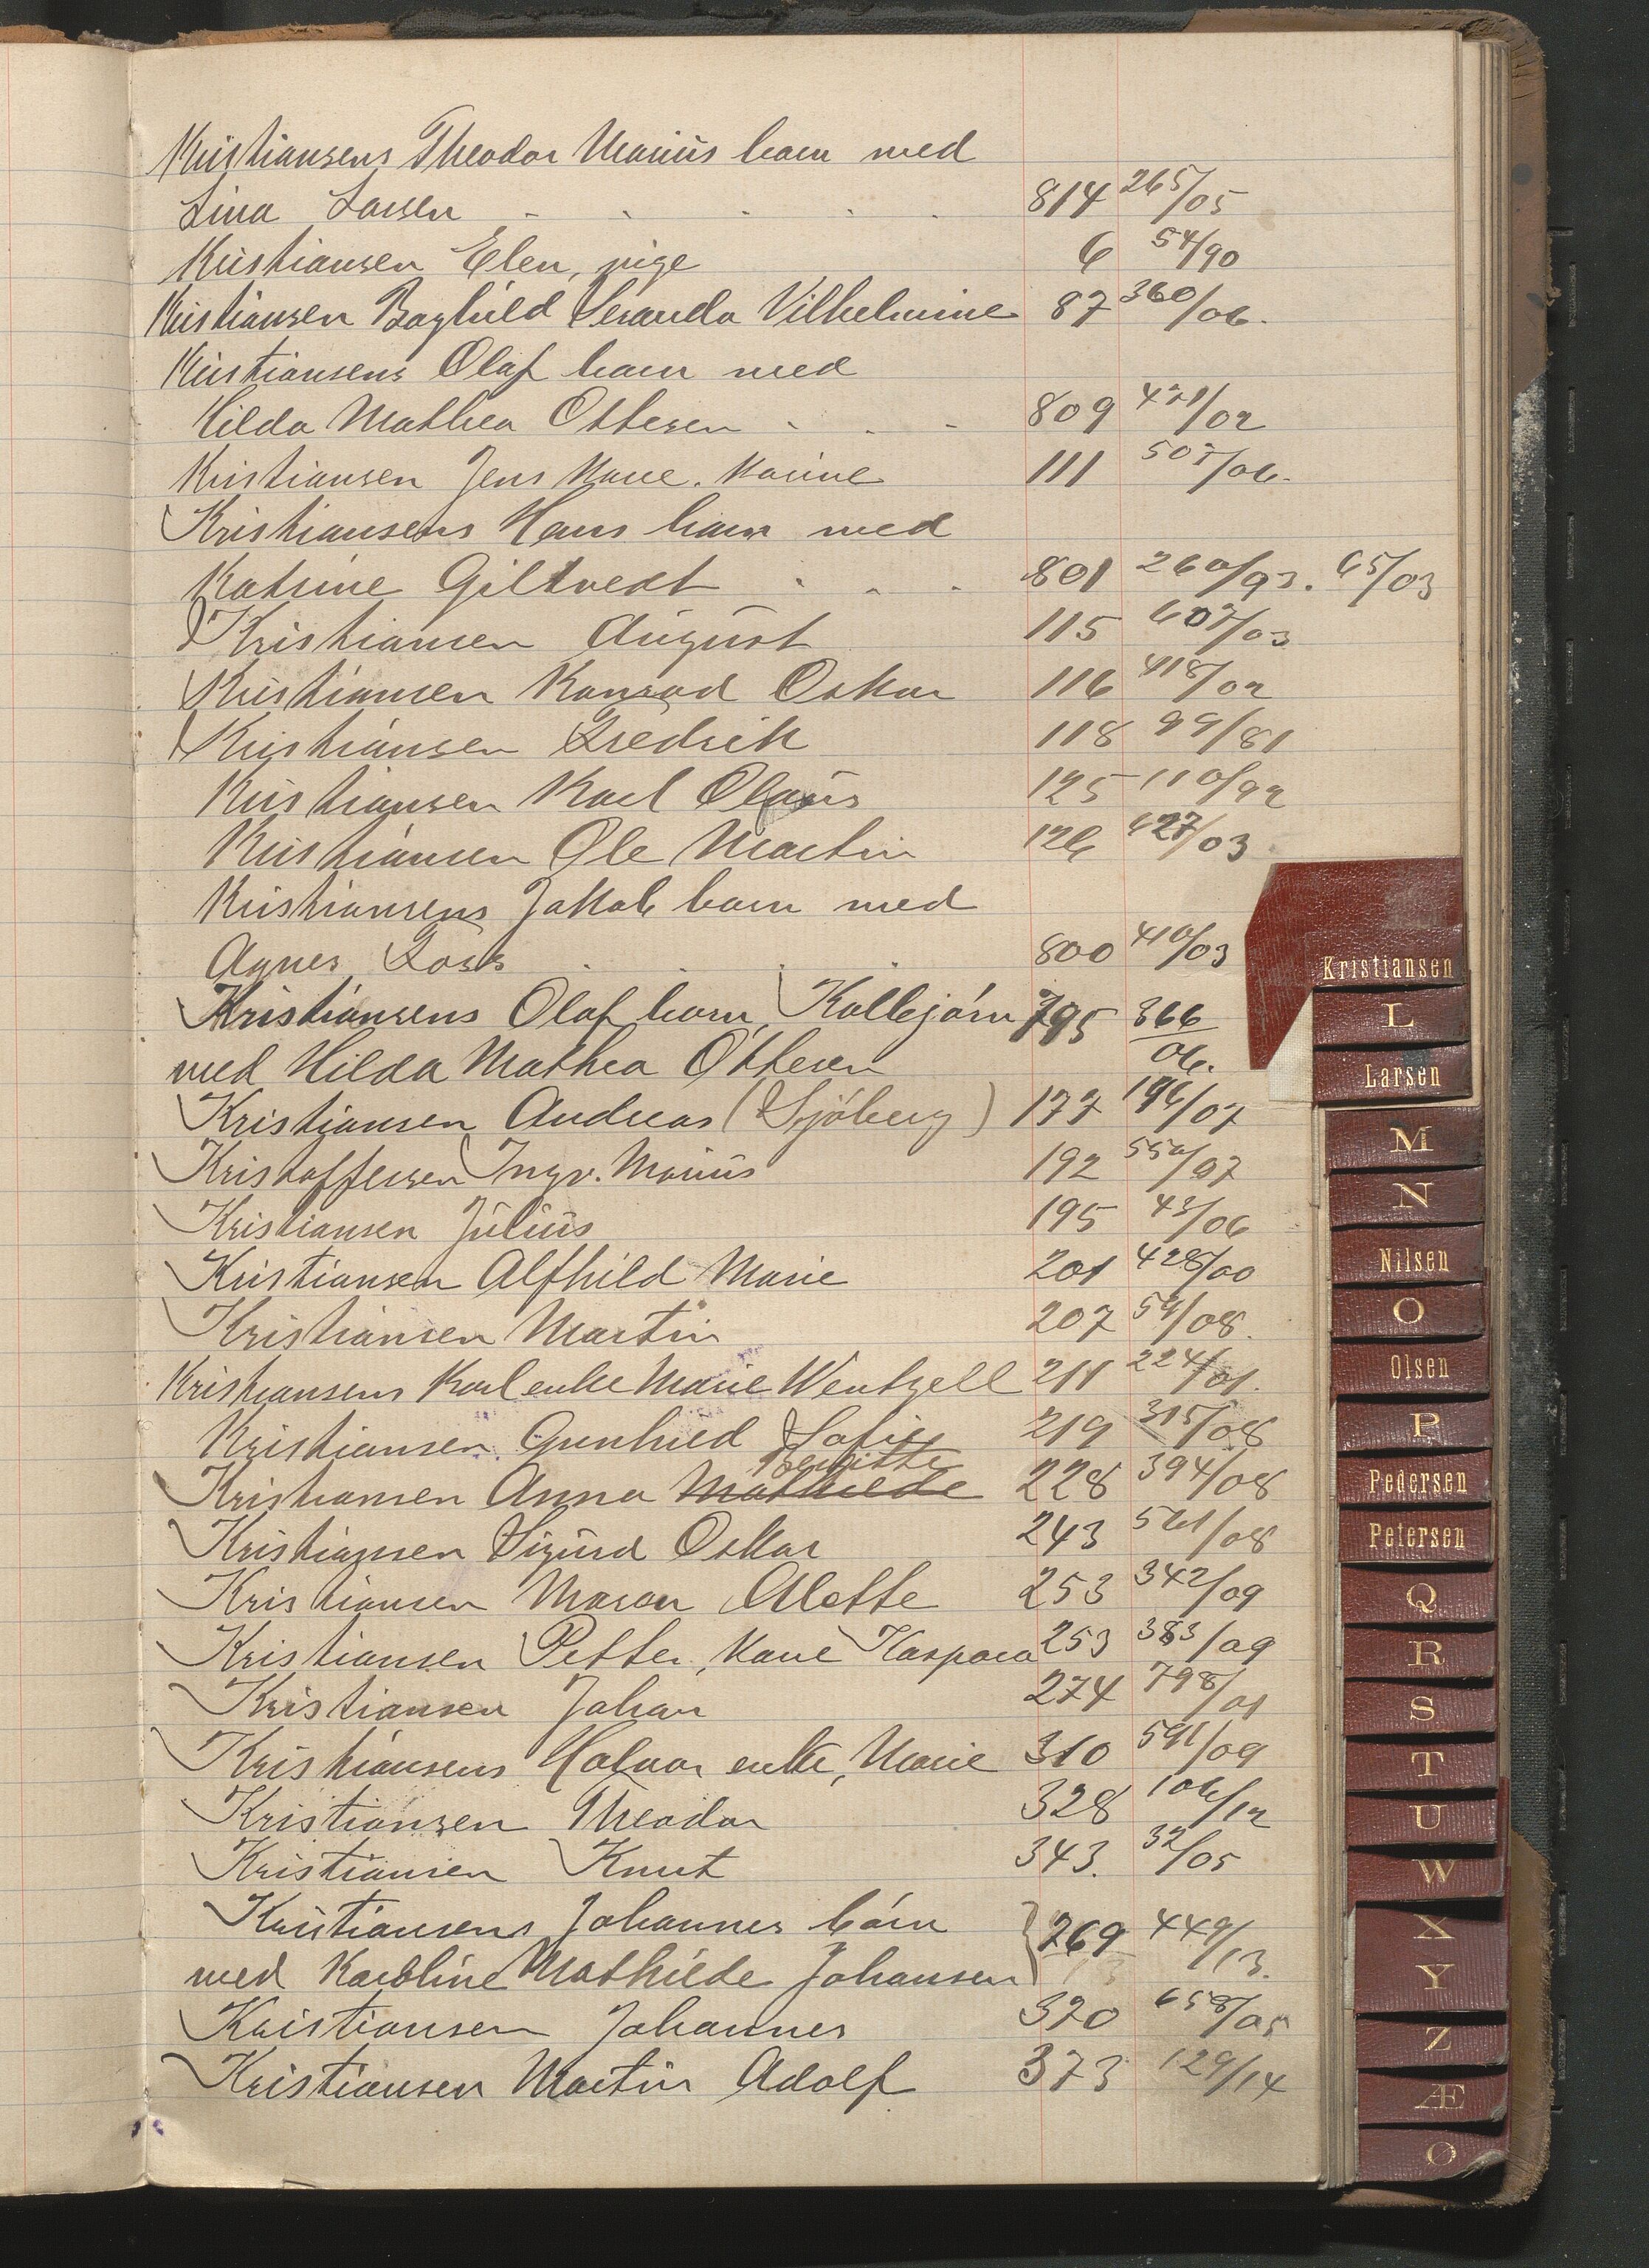 Kristiansens Theodor Marius barn med
Lina Larsen . . . . . 814 265/05
Kristiansen Elen, pige 6 54/90
Kristiansen Vilhelmine 87 360/06.
Kristiansens Olaf barn med
Hilda Mathea Ottesen . . . 809 421/02
Kristiansen Jens 111 /06.
Kristiansens Hans barn med
Katrine Giltvedt . . . 801 260/93. 65/03
Kristiansen August 115 607/03
Kristiansen Konrad Oskar 116 418/02
Kristiansen Fredrik 118 99/81
Kristiansen Karl Olaus 125 110/92
Kristiansen Ole Martin 126 427/03
Kristiansens Jakob barn med
Agnes Foss . . . . 800 410/03
Kristiansens Olaf barn, Kallejørn 795 366/06.
med Hilda Mathea Ottesen
Kristiansen Andreas (Sjøberg) 177 196/07
Kristoffersen Ingv. Marius 192 550/07
Kristiansen Julius 195 43/06
Kristiansen Alfhild Marie 201 428/00
Kristiansen Martin 207 54/08.
Kristiansens Karl enke Marie Wentzell 211 224/01.
Kristiansen Gunhild Sofie 219 315/08
Kristiansen Anna Mathilde 228 394/08
Kristiansen Sigurd Oskar 243 561/08
Kristiansen Maren Alette 253 342/09
Kristiansen Petter, Kaspara 253 383/09
Kristiansen Johan 274 798/01
Kristiansens Halvor enke, Marie 310 591/09
Kristiansen Theodor 328 106/12
Kristiansen Knut 343. 32/05
Kristiansens Johannes børn } 269 449/13.
med Karoline Mathilde Johansen
Kristiansen Johannes 320 658/05
Kristiansen Martin Adolf 373 129/14
Kristiansen
L
Larsen
M
N
Nilsen
O
Olsen
P
Pedersen
Petersen
Q
R
S
T
U
W
X
Y
Z
Æ
Ø